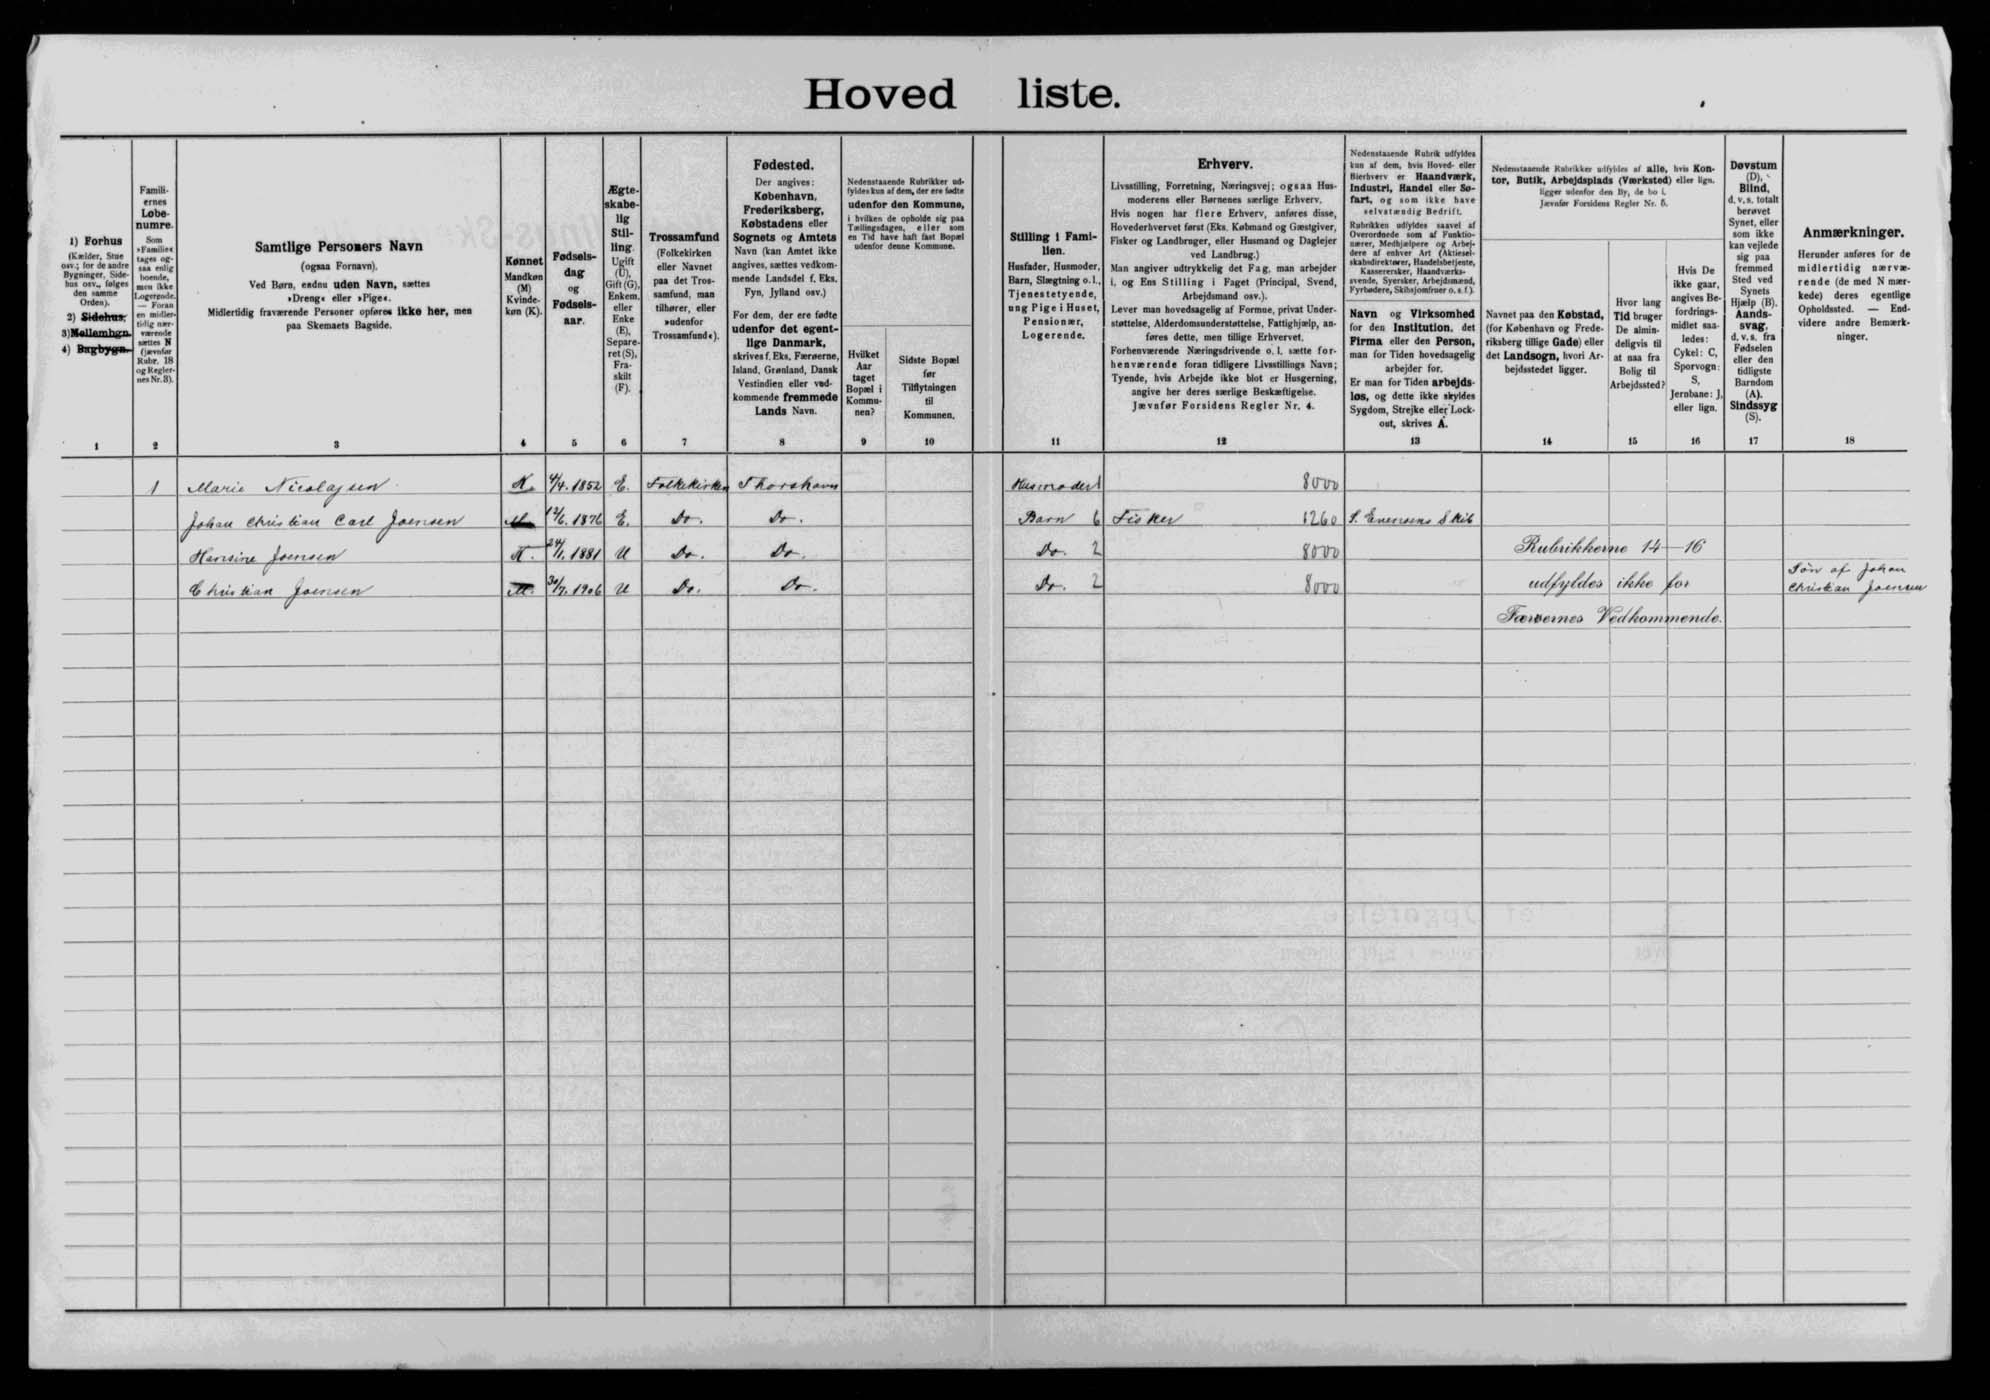 Hovedliste.
1) Forhus
(Kælder, Stue
osv.; for de andre
Bygninger, Side-
hus osv., følges
den samme
Orden).
2) Sidehus,
3) Mellembgn.
4) Bagbygn.
1
Famili-
ernes
Løbe-
numre.
Som
»Familie«
tages og-
saa enlig
boende,
men ikke
Logerende.
— Foran
en midler-
tidig nær-
værende
sættes N
(jævnfør
Rubr. 18
og Regler-
nes Nr. 3).
2
Samtlige Personers Navn
(ogsaa Fornavn).
Ved Børn, endnu uden Navn, sættes
»Dreng« eller »Pige«.
Midlertidig fraværende Personer opføres ikke her, men
paa Skemaets Bagside.
3
Kønnet
Mandkøn
(M)
Kvinde-
køn (K).
4
Fødsels-
dag
og
Fødsels-
aar.
5
Ægte-
skabe-
lig
Stil-
ling.
Ugift
(U),
Gift (G),
Enkem.
eller
Enke
(E),
Separe-
ret (S),
Fra-
skilt
(F).
6
Trossamfund
(Folkekirken
eller Navnet
paa det Tros-
samfund, man
tilhører, eller
»udenfor
Trossamfund«).
7
Fødested.
Der angives:
København,
Frederiksberg,
Købstadens eller
Sognets og Amtets
Navn (kan Amtet ikke
angives, sættes vedkom-
mende Landsdel f. Eks.
Fyn, Jylland osv.)
For dem, der ere fødte
udenfor det egent-
lige Danmark,
skrives f. Eks. Færøerne,
Island, Grønland, Dansk
Vestindien eller ved-
kommende fremmede
Lands Navn.
8
Nedenstaaende Rubrikker ud-
fyldes kun af dem, der ere fødte
udenfor den Kommune,
i hvilken de opholde sig paa
Tællingsdagen, eller som
en Tid have haft fast Bopæl
udenfor denne Kommune.
Hvilket
Aar
taget
Bopæl i
Kommu-
nen?
9
Sidste Bopæl
før
Tilflytningen
til
Kommunen.
10
Stilling i Fami-
lien.
Husfader, Husmoder,
Barn, Slægtning o.l.,
Tjenestetyende,
ung Pige i Huset,
Pensionær,
Logerende.
11
Erhverv.
Livsstilling, Forretning, Næringsvej; ogsaa Hus-
moderens eller Børnenes særlige Erhverv.
Hvis nogen har flere Erhverv, anføres disse,
Hovederhvervet først (Eks. Købmand og Gæstgiver,
Fisker og Landbruger, eller Husmand og Daglejer
ved Landbrug.)
Man angiver udtrykkelig det Fag, man arbejder
i, og Ens Stilling i Faget (Principal, Svend,
Arbejdsmand osv.).
Lever man hovedsagelig af Formue, privat Under-
støttelse, Alderdomsunderstøttelse, Fattighjælp, an-
føres dette, men tillige Erhvervet.
Forhenværende Næringsdrivende o. l. sætte for-
henværende foran tidligere Livsstillings Navn;
Tyende, hvis Arbejde ikke blot er Husgerning,
angive her deres særlige Beskæftigelse.
Jævnfør Forsidens Regler Nr. 4.
12
Nedenstaaende Rubrik udfyldes
kun af dem, hvis Hoved- eller
Bierhverv er Haandværk,
Industri, Handel eller Sø-
fart, og som ikke have
selvstændig Bedrift.
Rubrikken udfyldes saavel af
Overordnede som af Funktio-
nærer, Medhjælpere og Arbej-
dere af enhver Art (Aktiesel-
skabsdirektører, Handelsbetjente,
Kassererker, Haandværks-
svende, Syersker, Arbejdsmænd,
Fyrbødere, Skibsjomfruer o. s. f.).
Navn og Virksomhed
for den Institution, det
Firma eller den Person,
man for Tiden hovedsagelig
arbejder for.
Er man for Tiden arbejds-
løs, og dette ikke skyldes
Sygdom, Strejke eller Lock-
out, skrives A.
13
Nedenstaaende Rubrikker udfyldes af alle, hvis Kon-
tor, Butik, Arbejdsplads (Værksted) eller lign.
ligger udenfor den By, de bo i.
Jævnfør Forsidens Regler Nr. 5.
Navnet paa den Købstad,
(for København og Frede-
riksberg tillige Gade) eller
det Landsogn, hvori Ar-
bejdsstedet ligger.
14
Hvor lang
Tid bruger
De almin-
deligvis til
at naa fra
Bolig til
Arbejdssted?
15
Hvis De
ikke gaar,
angives Be-
fordrings-
midlet saa-
ledes:
Cykel: C,
Sporvogn:
S,
Jernbane: J,
eller lign.
16
Døvstum
(D),
Blind,
d. v. s. totalt
berøvet
Synet, eller
som ikke
kan vejlede
sig paa
fremmed
Sted ved
Synets
Hjælp (B).
Aands-
svag,
d. v. s. fra
Fødselen
eller den
tidligste
Barndom
(A).
Sindssyg
(S).
17
Anmærkninger.
Herunder anføres for de
midlertidig nærvæ-
rende (de med N mær-
kede) deres egentlige
Opholdssted. — End-
videre andre Bemærk-
ninger.
18
1 Marie Nicolajsen K. 4/4. 1852 E. Folkekirken Thorshavn Husmoder 1 8000
Johan Christian Carl Joensen M. 12/6. 1876 E. Do. Do. Barn 6 Fisker 1260 S. Evensens Skib
Hansine Joensen K. 24/1. 1881 U Do. Do. Do. 2 8000 Rubrikkerne 14—16
Christian Joensen M. 30/7. 1906 U Do. Do. Do. 2 8000 udfyldes ikke for Søn af Johan
Christian Joensen
Færøernes Vedkommende.